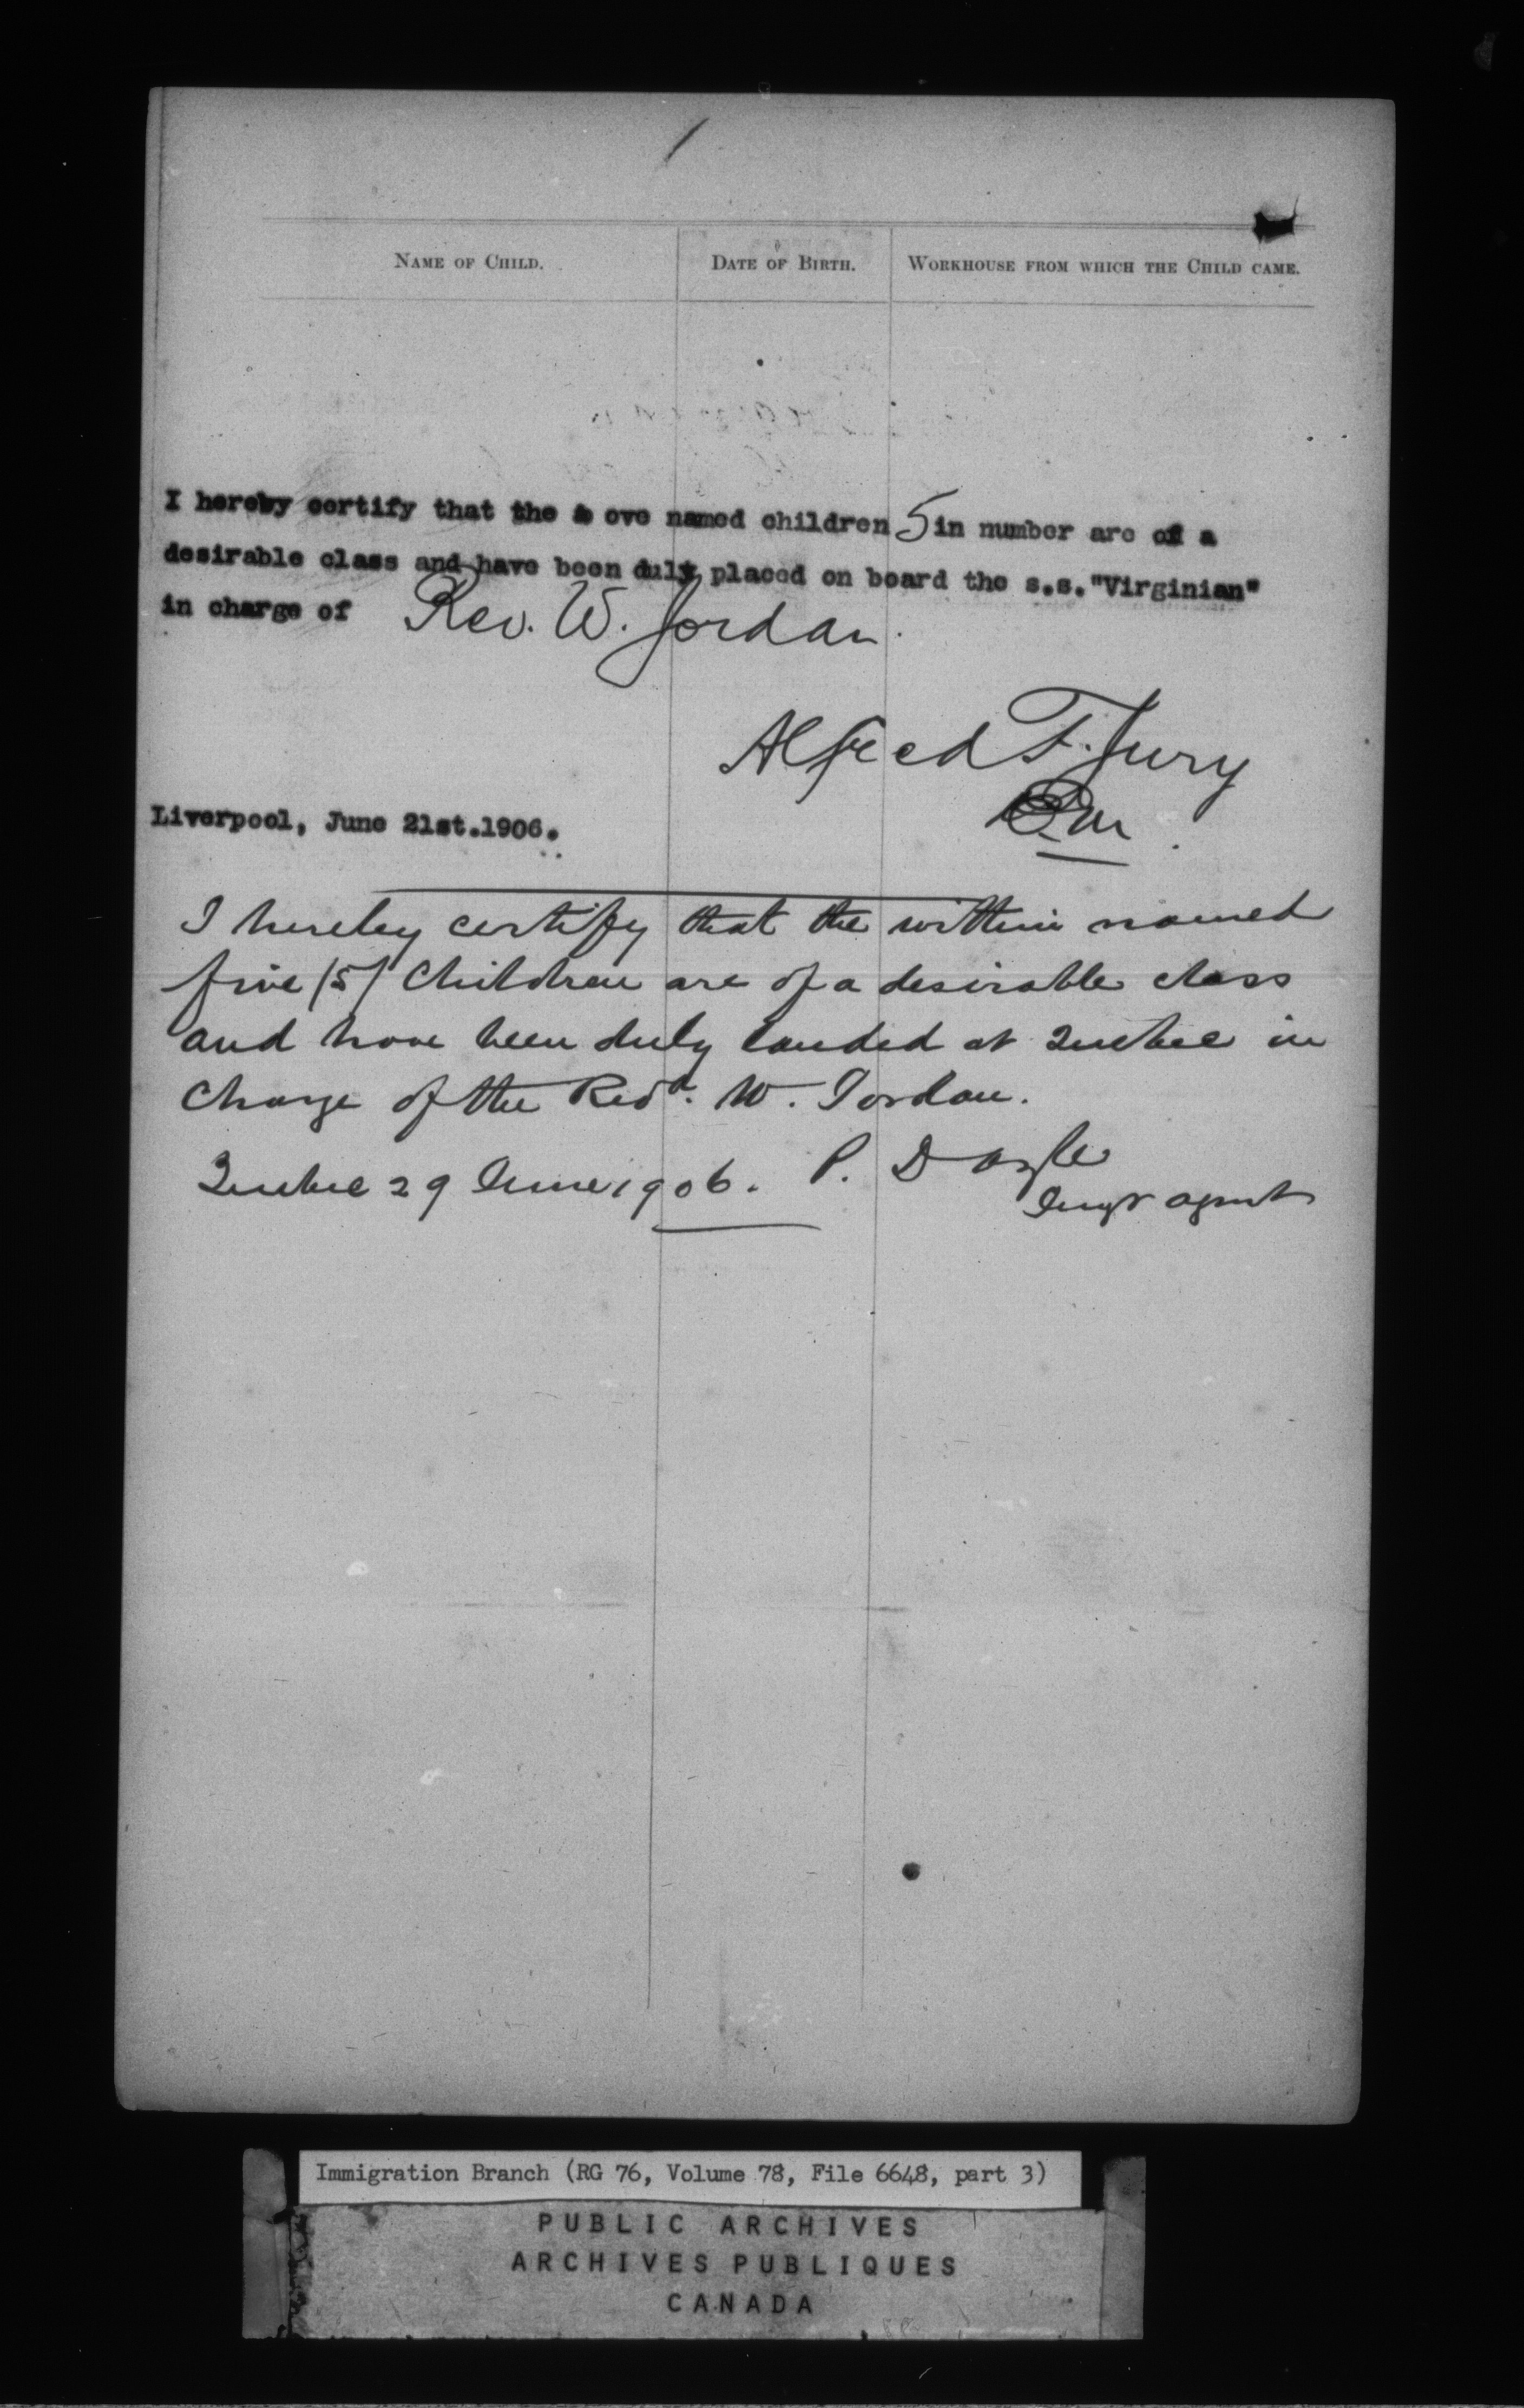 NAME OF CHILD. DATE OF BIRTH. WORKHOUSE FROM WHICH THE CHILD CAME.
I hereby certify that the a ove named children 5 in number are of a
desirable class and have been duly placed on board the s.s. "Virginian"
in charge of Rev. W. Jordan.
Alfred F. Jury
Liverpool, June 21st.1906.
I hereby certify that the within named
five (5) Children are of a desirable class
and have been duly landed at Quebec in
Charge of the Revd. W. Jordan.
Quebec 29 June 1906. P. Doyle
Imgr agent
Immigration Branch (RG 76, Volume 78, File 6648, part 3)
PUBLIC ARCHIVES
ARCHIVES PUBLIQUES
CANADA